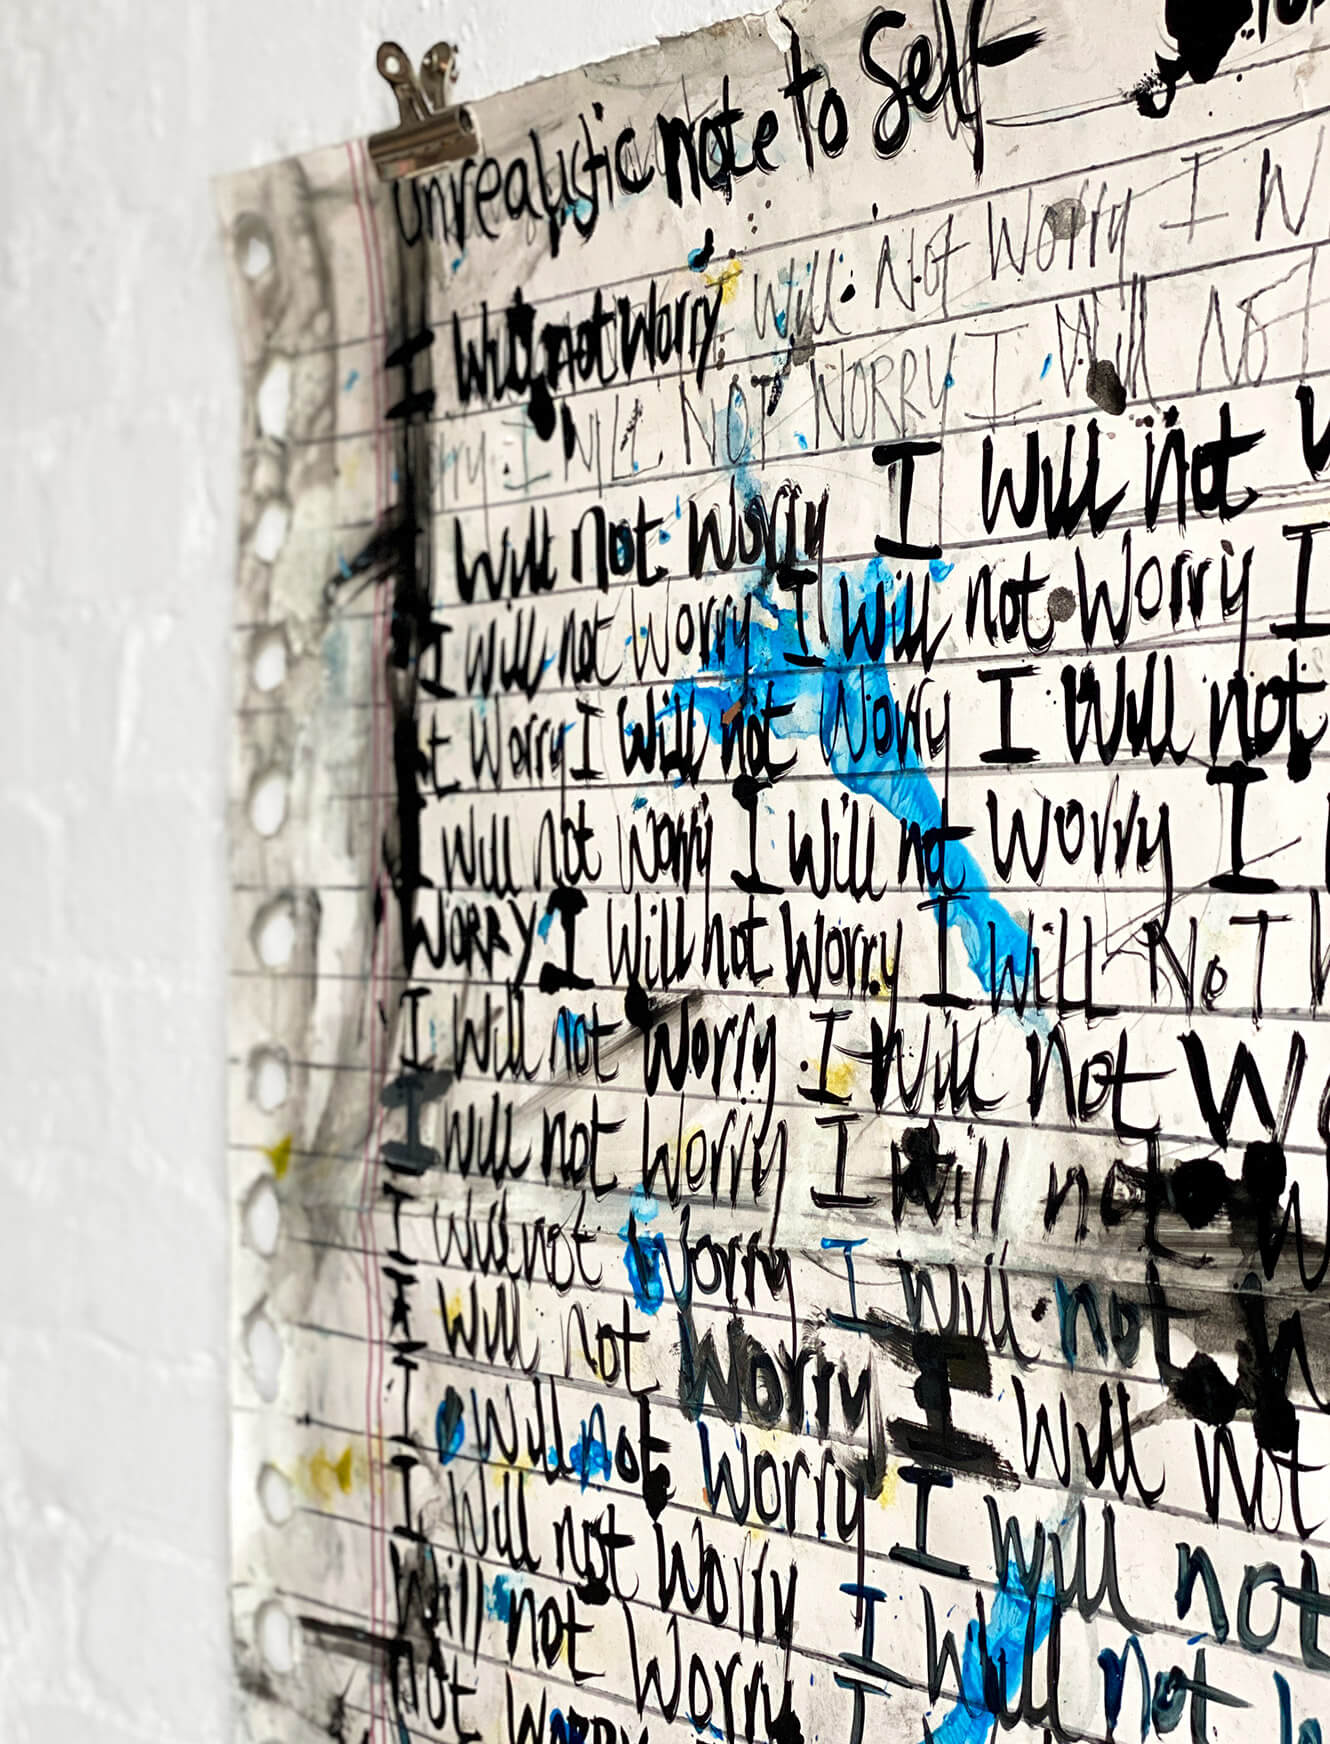 Unrealistic note to Self
I will not worry Will Not Worry I W
ry I WILL NOT WORRY I Will Not
I Will not Worry I Will not W
I will not Worry I will not Worry I
t Worry I will not Worry I Will not
I will not Worry I will not Worry I
WORRY I Will not Worry I Will NoT W
I Will not Worry I will not Wo
I will not Worry I will not W
I will not Worry I will not W
I will not Worry I will not
I will not Worry I will not
I Will not Worry I will not
Will not Worry I
not WORRY I